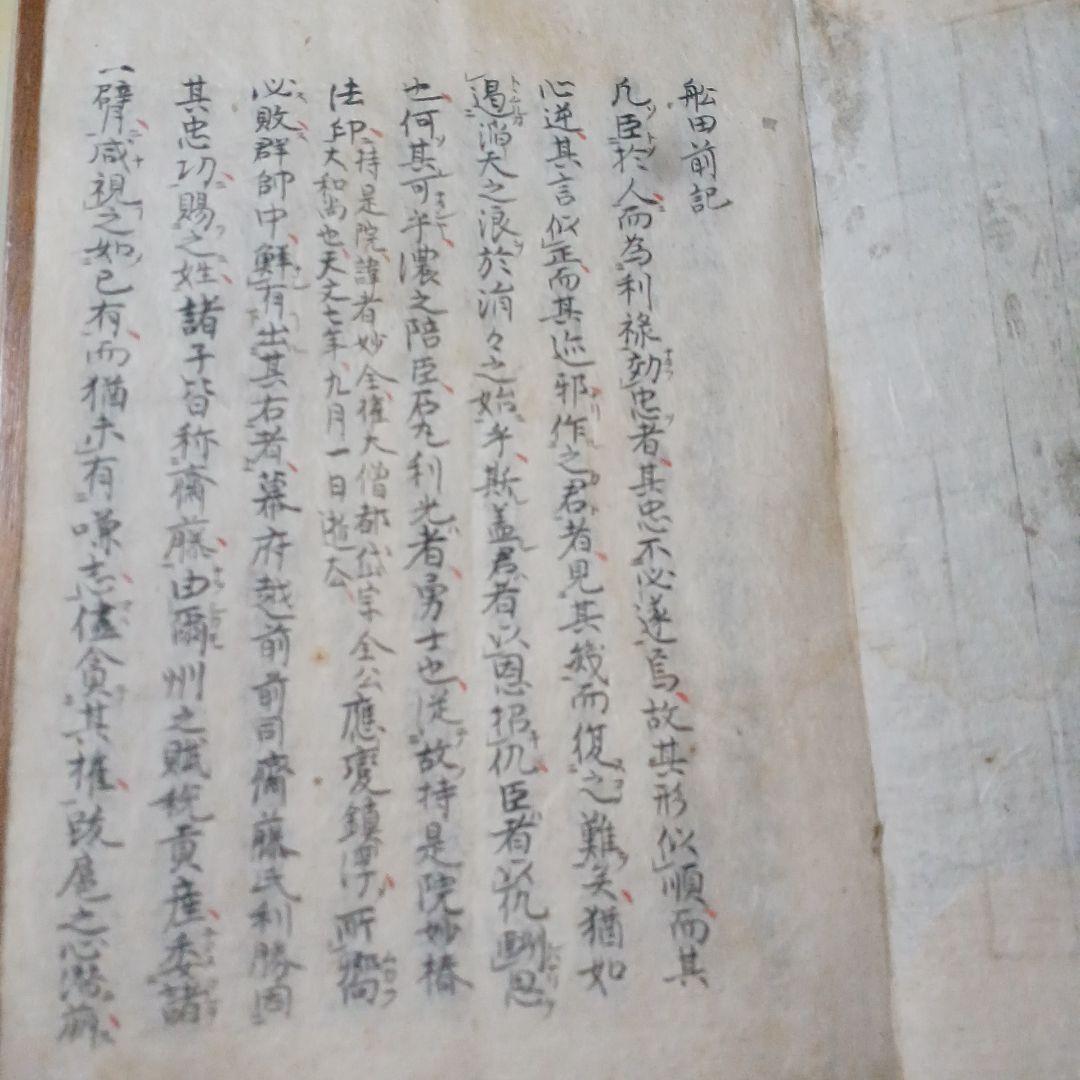 舩田前記
凡臣於人而為利祿効忠者其忠不必遂焉故其形似順而其
心逆其言似正而其迹邪作之君者見其幾而復之難矣猶如
遏滔天之浪於涓々之始乎斯盖君者以恩招仇臣者以仇酬恩
也何其可乎濃之陪臣石丸利光者勇士也従故持是院妙椿
法印持是院諱者妙全権大僧都
大和尚也天文七年九月一日逝去
全公應變鎮浮所嚮
必敗群帥中鮮有出其右者幕府越前前司齋藤氏利勝因
其忠功賜之姓諸子皆称齋藤由爾州之賦税貢産委諸
一臂咸視之如已有而猶未有嗛志儘貪其権跋扈之心潜